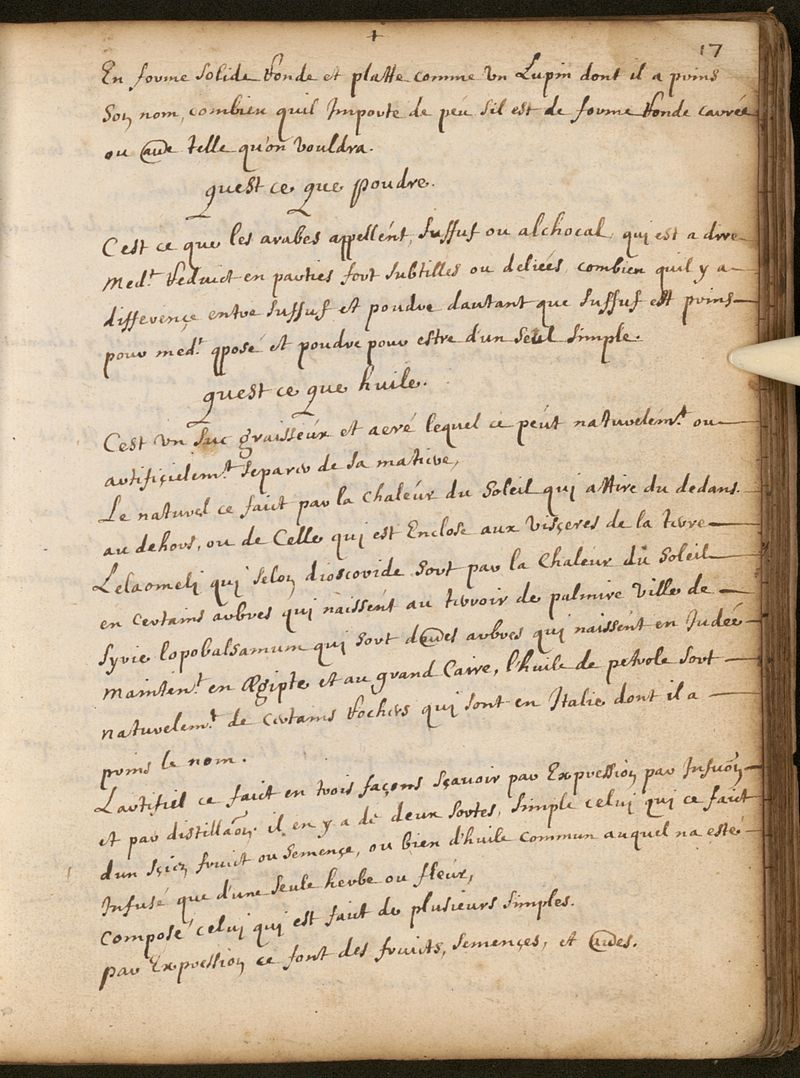 +
17
En forme solide Ronde et platte comme un Lupin dont il a prins
Son nom, combien quil Importe de peu sil est de forme Ronde carrée
ou telle qu'on vouldra.
quest ce que poudre.
C'est ce que les arabes appellent, suffuf ou alchocal, qui est a dire
Med.t Reduict en parties fort subtilles ou deliées, combien quil y a
differençe entre suffuf et poudre dautant que suffuf est prins
pour med.t qposé et poudre pour estre d'un seul simple.
quest ce que huile.
C'est un suc graisseux et aeré lequel ce peut naturelem.t ou
artifiçielem.t separer de sa matiere,
Le naturel ce faict par la chaleur du soleil qui attire du dedans.
au dehors, ou de Celle qui est Enclose aux visçeres de la terre
Lelaomeli qui selon dioscoride sort par la Chaleur du soleil
en certains arbres qui naissent au terroir de palmire ville de
syrie lopobalsamum qui sort arbres qui naissent en Judée
mainten.t en Ægipte et au grand Caire, l'huile de petrole sort
naturelem.t de certains Rochers qui sont en Italie dont il a
prins le nom.
Lartifiel ce faict en trois façons sçavoir par Expression par Infuõn
et par distillaõn. il en y a de deux sortes, simple celui qui ce faict
dun sçien fruict ou semençe, ou bien d'huile commun auquel na esté
Infusé que d'une seule herbe ou fleur,
Composé celui qui est faict de plusieurs simples.
par Expression ce font des fruicts, semençes, et